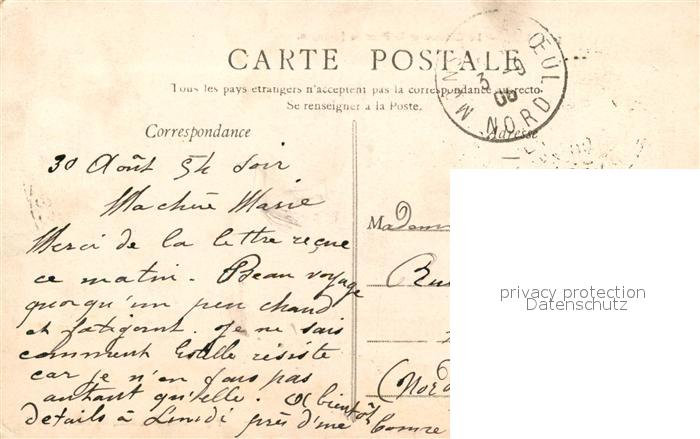 CARTE POSTALE
Tous les pays étrangers n'acceptent pas la correspondance au recto.
Se renseigner à la Poste.
Correspondance
Adresse
ŒUL
3 -9
06
NORD
30 Août 5h soir
Ma chère Marie
Merci de la lettre reçue
ce matin. Beau voyage
quoiqu'un peu chaud
et fatigant. Je ne sais
comment Estelle résiste
car je n'en fais pas
autant qu'elle. A bientôt
détails à Lundi près d'une
Madem
Ru
(Nord
privacy protection
Datenschutz